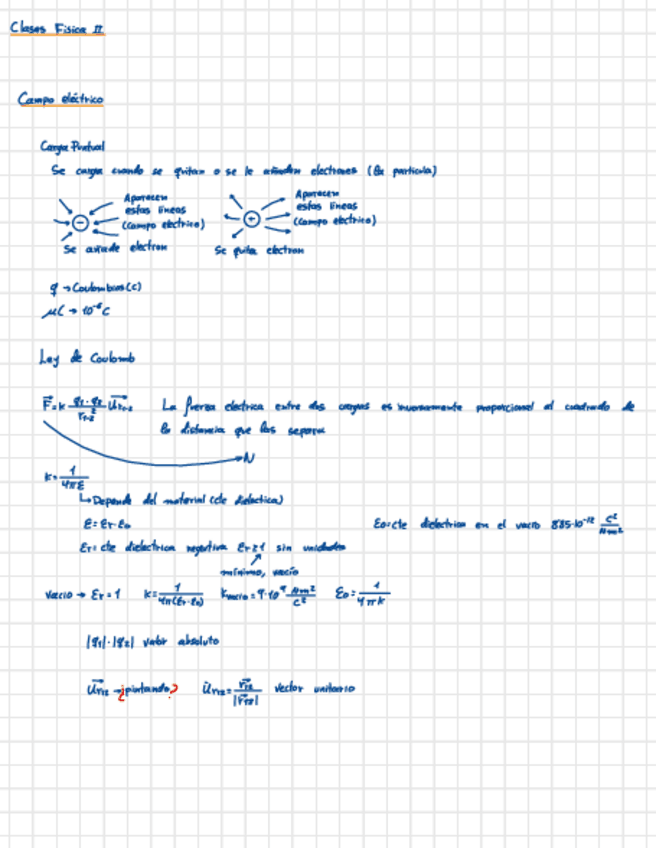 Clases Física II
Campo eléctrico
Carga Puntual
Se carga cuando se quitan o se le añaden electrones (la partícula)
Aparecen
estas líneas
(campo eléctrico)
Se añade electron
Aparecen
estas líneas
(campo eléctrico)
Se quita electron
q → Coulombios (C)
μC → 10⁻⁶ C
Ley de Coulomb
F⃗ = k q₁·q₂/r₁₋₂² u⃗r₁₋₂ La fuerza electrica entre dos cargas es inversamente proporcional al cuadrado de
la distancia que las separa
N
k = 1/4πε
↳ Depende del material (cte dielectica)
ε = εr·ε₀
ε₀ = cte dielectrica en el vacio 8'85·10⁻¹² C²/Nm²
εr = cte dielectrica εr ≥ 1 sin unidades
mínimo, vacío
vacio → εr = 1 k = 1/4π(εr·ε₀) kvacio = 9·10⁹ Nm²/C² ε₀ = 1/4πk
|q₁|·|q₂| valor absoluto
u⃗r₁₂ → ¿pintando? u⃗r₁₂ = r⃗₁₂/|r⃗₁₂| vector unitario